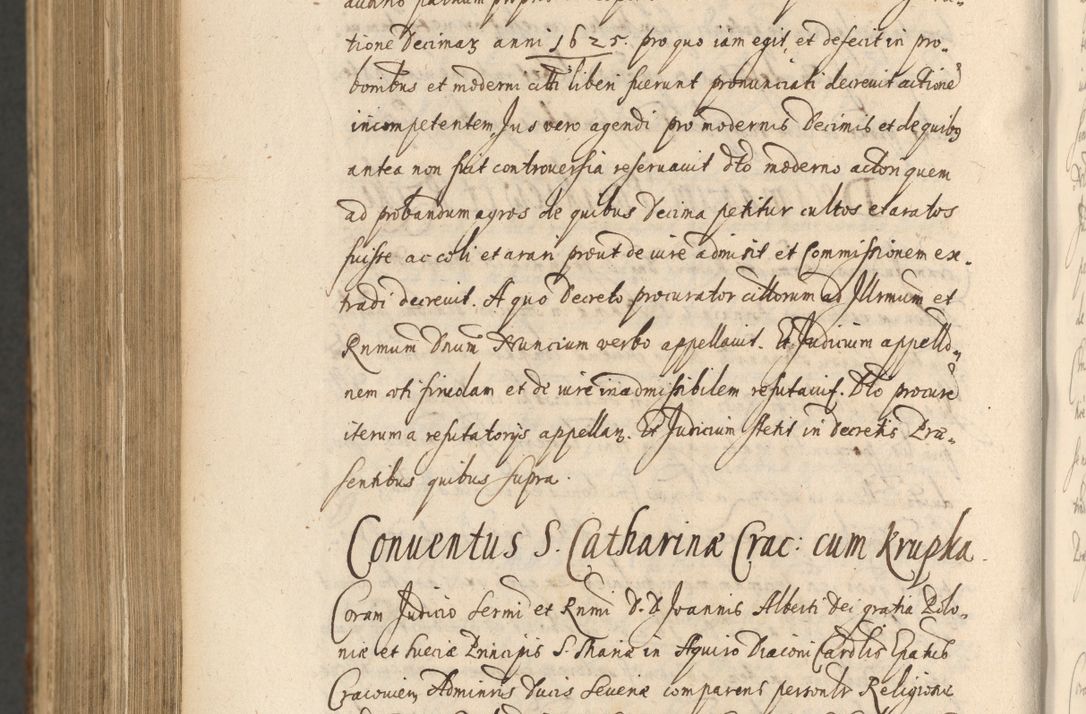 tione Decimaꝝ anni 1625. pro quo iam egit, et defecit in pro-
bonibus et moderni citti liberi fuerunt pronunciati decreuit actione
incompetentem, Jus vero agendi pro modernis Decimis et de quibꝯ
antea non fuit controuersia reseruauit dto moderno actori quem
ad probandum agros de quibus Decima petitur cultos et aratos
fuisse ac coli et arari prout de iure admisit et Commissionem ex-
tradi decreuit. A quo Decreto procurator cittorum ad Illrmum et
Rnmum Dnum Nuncium verbo appellauit. Et Judicium appello-
nem uti friuolam et de iure inadmissibilem refutauit. Dto procure
iterum a refutatorijs appellaꝝ. Et Judicium stetit in decretis Præ-
sentibus quibus supra.
Conuentus S. Catharinæ Crac: cum Krupka.
Coram Judicio Sermi et Rnmi D. D Joannis Alberti Dei gratia Polo-
niæ et Sueciæ Principis S. Mariæ in Aquiro Diaconi Cardlis Epatus
Cracouien, Adminris Ducis Seueriæ comparens personlr Religiosus